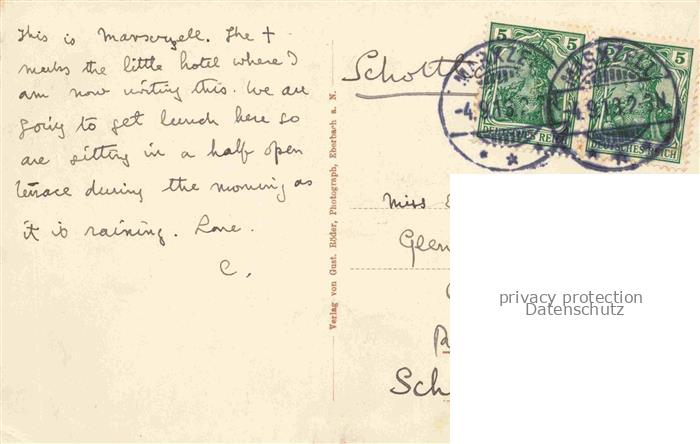 This is Marxzell. The +
marks the little hotel where I
am now writing this. We are
going to get lunch here so
are sitting in a half open
terrace during the morning as
it is raining. Love.
C.
Verlag von Gust. Röder, Photograph, Eberbach a. N.
Schottl
5
5
DEUTSCHES REICH
DEUTSCHES REICH
MARXZELL
-4.9.13.2-3N
MARXZELL
-4.9.13.2-3N
Miss
Glen
Sch
privacy protection
Datenschutz